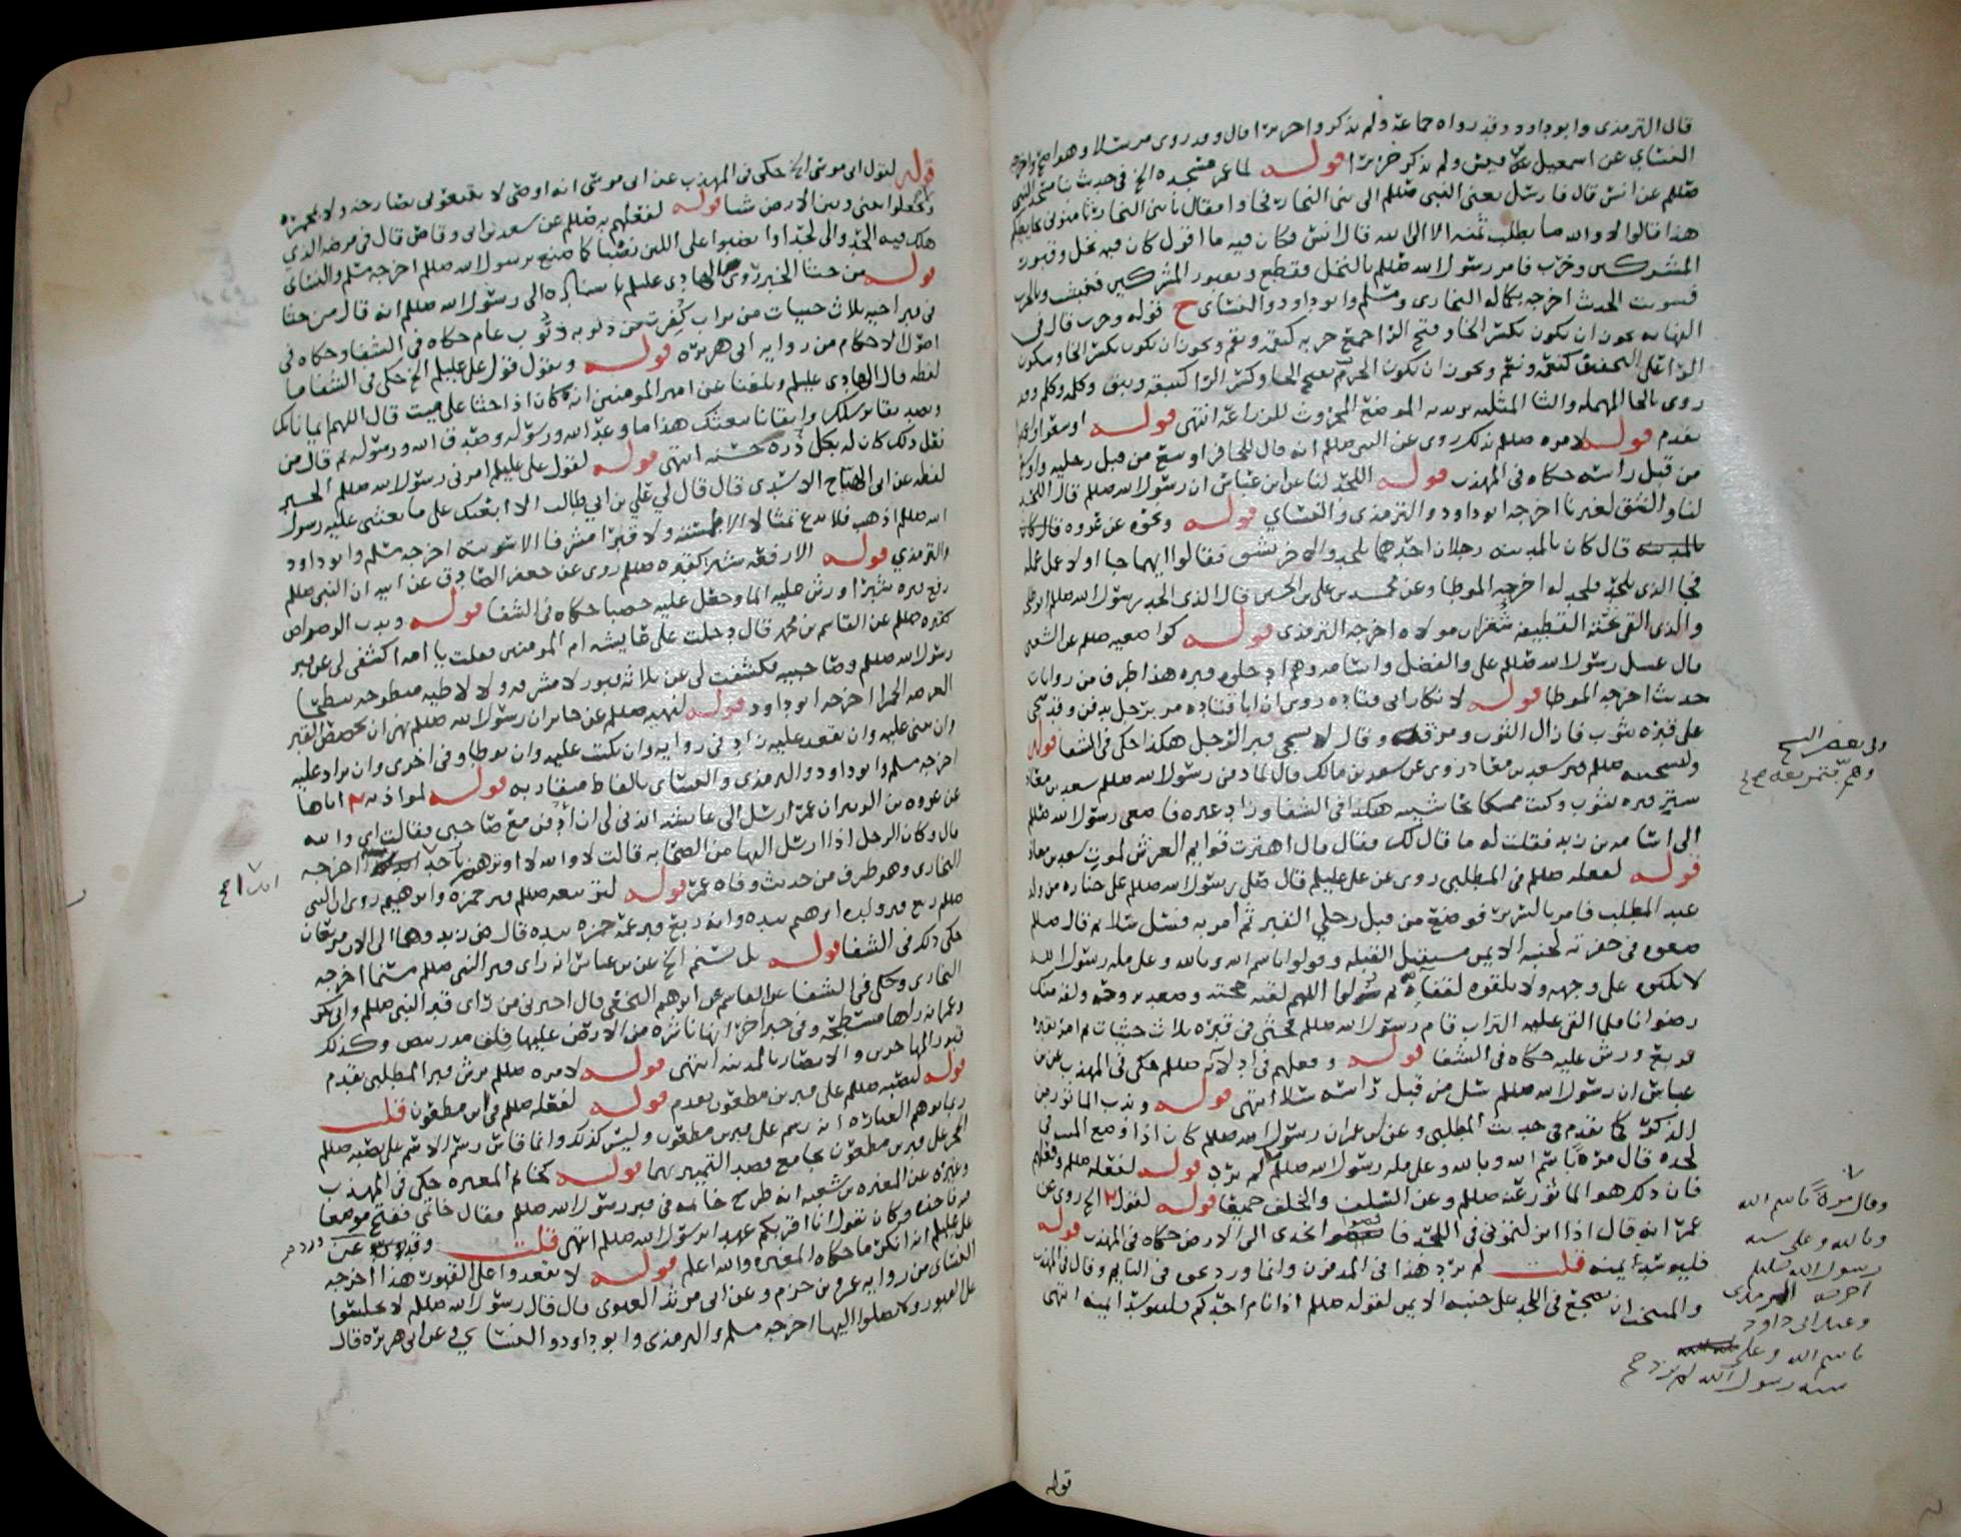 قال الترمذي وابو داود وقد رواه جماعة ولم يذكروا جريرا قال وقد روي مرسلا وهو اصح
النسائي عن اسمعيل ولم يذكر جريرا قوله لما عمر مسجده الخ في حديث
صللم عن انس قال فارسل يعني النبي صللم الى بني النجار فجاوا فقال يا بني النجار ثامنوني بحايطكم
هذا قالوا لا والله ما نطلب ثمنه الا الى الله قال انس وكان فيه ما اقول كان فيه نخل وقبور
المشركين وخرب فامر رسول الله صللم بالنخل فقطع وبقبور المشركين فنبشت وبالخرب
فسويت الحديث اخرجه بكماله البخاري ومسلم وابو داود والنسائي ح قوله وخرب قال في
النهاية يجوز ان يكون بكسر الخا وفتح الرا جمع خربه كنقمة ونقم ويجوز ان يكون بكسر الخا وسكون
الرا على التخفيف كنعمة ونعم ويجوز ان يكون الخرب بفتح الخا وكسر الرا كنبقة ونبق وكلمة وكلم وقد
روي بالحا المهملة والثا المثلثة يريد به الموضع المحروث للزراعة انتهى قوله
تقدم قوله لامره صللم بذلك روي عن النبي صللم انه قال للحافر اوسع من قبل رجليه واوسع
من قبل راسه حكاه في المهذب قوله اللحد لنا عن ابن عباس ان رسول الله صللم قال اللحد
لنا والشق لغيرنا اخرجه ابو داود والترمذي والنسائي قوله ونحوه عن عروه قال كان
بالمدينة قال كان بالمدينة رجلان احدهما يلحد والاخر يشق فقالوا ايهما جا اولا عمل عمله
فجا الذي يلحد فلحد له اخرجه الموطا وعن محمد بن علي بن الحسين قال الذي الحد رسول الله صللم ابو طلحة
والذي القى تحته القطيفة شقران مولاه اخرجه الترمذي قوله كواضعيه صللم عن الشعبي
قال غسل رسول الله صللم علي والفضل واسامه وهم ادخلوه قبره هذا طرف من روايات
حديث اخرجه الموطا قوله لانكار ابي قتاده روي ان ابا قتاده مر برجل يدفن وقد سجي
على قبره بثوب فازال الثوب ومزقه وقال لا يسجى قبر الرجل هكذا حكي في الشفا قوله
ولتسجيته صللم قبر سعد بن معاذ روي عن سعد بن مالك قال لما دفن رسول الله صللم سعد بن معاذ
ستر قبره بثوب وكنت ممسكا بحاشيته هكذا في الشفا وزاد غيره فاصغى رسول الله صللم
الى اسامه بن زيد فقلت له ما قال لك فقال قال اهتزت قوايم العرش لموت سعد بن معاذ
قوله لفعله صللم في المطلبي روي عن علي عليلم قال صلى رسول الله صللم على جنازه من ولد
عبد المطلب فامر بالسرير فوضع من قبل رجلي القبر ثم امر به فسل سلا ثم قال صللم
ضعوه في حفرته لجنبه الايمن مستقبل القبلة وقولوا باسم الله وبالله وعلى ملة رسول الله
لا تكبوه على وجهه ولا تلقوه لقفاه ثم قولوا اللهم لقنه حجته وصعد بروحه ولقه منك
رضوانا فلما القي عليه التراب قام رسول الله صللم فحثى في قبره ثلاث حثيات ثم امر بقبره
فربع ورش عليه حكاه في الشفا قوله وفعلهم في ادلائه صللم حكي في المهذب عن بن
عباس ان رسول الله صللم سل من قبل راسه سلا انتهى قوله وندب الماثور من
الذكر كما تقدم في حديث المطلبي وعن بن عمر ان رسول الله صللم كان اذا وضع الميت في
لحده قال مرة باسم الله وبالله وعلى ملة رسول الله صللم لم يزد قوله لفعله صللم وفعلهم
فان ذلك هو الماثور عنه صللم وعن السلف والخلف جميعا قوله لقول الخ روي عن
عمر انه قال اذا انزلتموني في اللحد فافضوا بخدي الى الارض حكاه في المهذب قوله
فليوسد يمينه قلت لم يرد هذا في المدفون وانما ورد عنه في النايم وقال في المهذب
والمستحب ان يضجع في اللحد على جنبه الايمن لقوله صللم اذا نام احدكم فليتوسد يمينه انتهى
وقال مرة باسم الله
وبالله وعلى سنة
رسول الله صللم
اخرجه الترمذي
وعند ابي داود
باسم الله وعلى
سنة رسول الله لم يزد صح
قوله
قوله لقول ابي موسى الخ حكي في المهذب عن ابي موسى انه اوصى لا يتبعوني بصارخة ولا بمجمرة
ولا تجعلوا بيني وبين الارض شيا قوله لفعلهم به صللم عن سعد بن ابي وقاص قال في مرضه الذي
هلك فيه الحدوا لي لحدا وانصبوا علي اللبن نصبا كما صنع برسول الله صللم اخرجه مسلم والنسائي
قوله من حثا الخبر روى الهادي عليلم باسناده الى رسول الله صللم انه قال من حثا
في قبر اخيه ثلاث حثيات من تراب كفرت من ذنوبه ذنوب عام حكاه في الشفا وحكاه في
اصول الاحكام من رواية ابي هريره قوله ويقول قول علي عليلم الخ حكي في الشفا ما
لفظه قال الهادي عليلم وبلغنا عن امير المومنين انه كان اذا حثا على ميت قال اللهم ايمانا بك
وتصديقا برسلك وايقانا ببعثك هذا ما وعد الله ورسوله وصدق الله ورسوله ثم قال من
فعل ذلك كان له بكل ذرة حسنة انتهى قوله لقول علي عليلم امرني رسول الله صللم الخبر
لفظه عن ابي الهياج الاسدي قال قال لي علي بن ابي طالب الا ابعثك على ما بعثني عليه رسول
الله صللم اذهب فلا تدع تمثالا الا طمسته ولا قبرا مشرفا الا سويته اخرجه مسلم وابو داود
والترمذي قوله الا رفعه شبرا كقبره صللم روي عن جعفر الصادق عن ابيه ان النبي صللم
رفع قبره شبرا ورش عليه الما وجعل عليه حصبا حكاه في الشفا قوله وندب
كقبره صللم عن القاسم بن محمد قال دخلت على عايشه ام المومنين فقلت يا امه اكشفي لي عن قبر
رسول الله صللم وصاحبيه فكشفت لي عن ثلاثة قبور لا مشرفة ولا لاطية مبطوحة ببطحا
العرصة الحمرا اخرجه ابو داود قوله لنهيه صللم عن جابر ان رسول الله صللم نهى ان يجصص القبر
وان يبنى عليه وان يقعد عليه زاد في رواية وان يكتب عليه وان يوطا وفي اخرى وان يزاد عليه
اخرجه مسلم وابو داود والترمذي والنسائي بالفاظ متقاربة قوله
عن عروه بن الزبير ان عمر ارسل الى عايشه ائذني لي ان أدفن مع صاحبي فقالت اي والله
قال وكان الرجل اذا ارسل اليها من الصحابة قالت لا والله لا اوثرهم باحد ابدا اخرجه
البخاري وهو طرف من حديث وفاة عمر قوله لتربيعه صللم قبر حمزة وابراهيم روي ان النبي
صللم ربع قبر ولده ابراهيم بيده وانه ربع قبر عمه حمزه بيده قال وهما الى الان مربعان
حكى ذلك في الشفا قوله بل سنم الخ عن بن عباس انه راى قبر النبي صللم مسنما اخرجه
البخاري وحكى في الشفا عن القاسم عن ابراهيم النخعي قال اخبرني من راى قبر النبي صللم وابي بكر
وعمر انه راها مسطحة وفي خبر اخر انها ناشزه من الارض عليها فلق مدر بيض وكذلك
قبور المهاجرين والانصار بالمدينة انتهى قوله لامره صللم برش قبر المطلبي تقدم
قوله لنصبه صللم على قبر بن مظعون تقدم قوله لفعله صللم في ابن مظعون قلت
ربما توهم العباره انه رسم على قبر بن مظعون وليس كذلك وانما قاس رسم الاسم على نصبه صللم
الحجر على قبر بن مظعون بجامع قصد التمييز بهما قوله كخاتم المغيره حكي في المهذب
وغيره عن المغيره بن شعبه انه طرح خاتمه في قبر رسول الله صللم فقال خاتمي ففتح موضعا
فيه فاخذه وكان يقول انا اقربكم عهدا برسول الله صللم انتهى قلت وقد ورد عن
علي عليلم انه انكر ما حكاه المغيره والله اعلم قوله لا تقعدوا على القبور هذا اخرجه
النسائي من رواية عمرو بن حزم وعن ابي مرثد الغنوي قال قال رسول الله صللم لا تجلسوا
على القبور ولا تصلوا اليها اخرجه مسلم والترمذي وابو داود والنسائي وعن ابي هريره قال